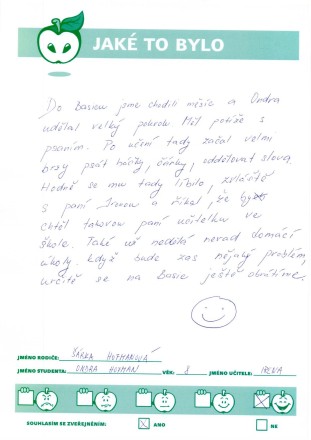 JAKÉ TO BYLO
Do Basicu jsme chodili měsíc a Ondra
udělal velký pokrok. Měl potíže s
psaním. Po učení tady začal velmi
brzy psát háčky, čárky, oddělovat slova.
Hodně se mu tady líbilo, zvláště
s paní Irenou a říkal, že by
chtěl takovou paní učitelku ve
škole. Také už nedělá nerad domácí
úkoly. Když bude zas nějaký problém,
určitě se na Basic ještě obrátíme.
JMÉNO RODIČE: ŠÁRKA HOFMANOVÁ
JMÉNO STUDENTA: ONDRA HOFMAN VĚK: 8 JMÉNO UČITELE: IRENA
SOUHLASÍM SE ZVEŘEJNĚNÍM: ANO NE